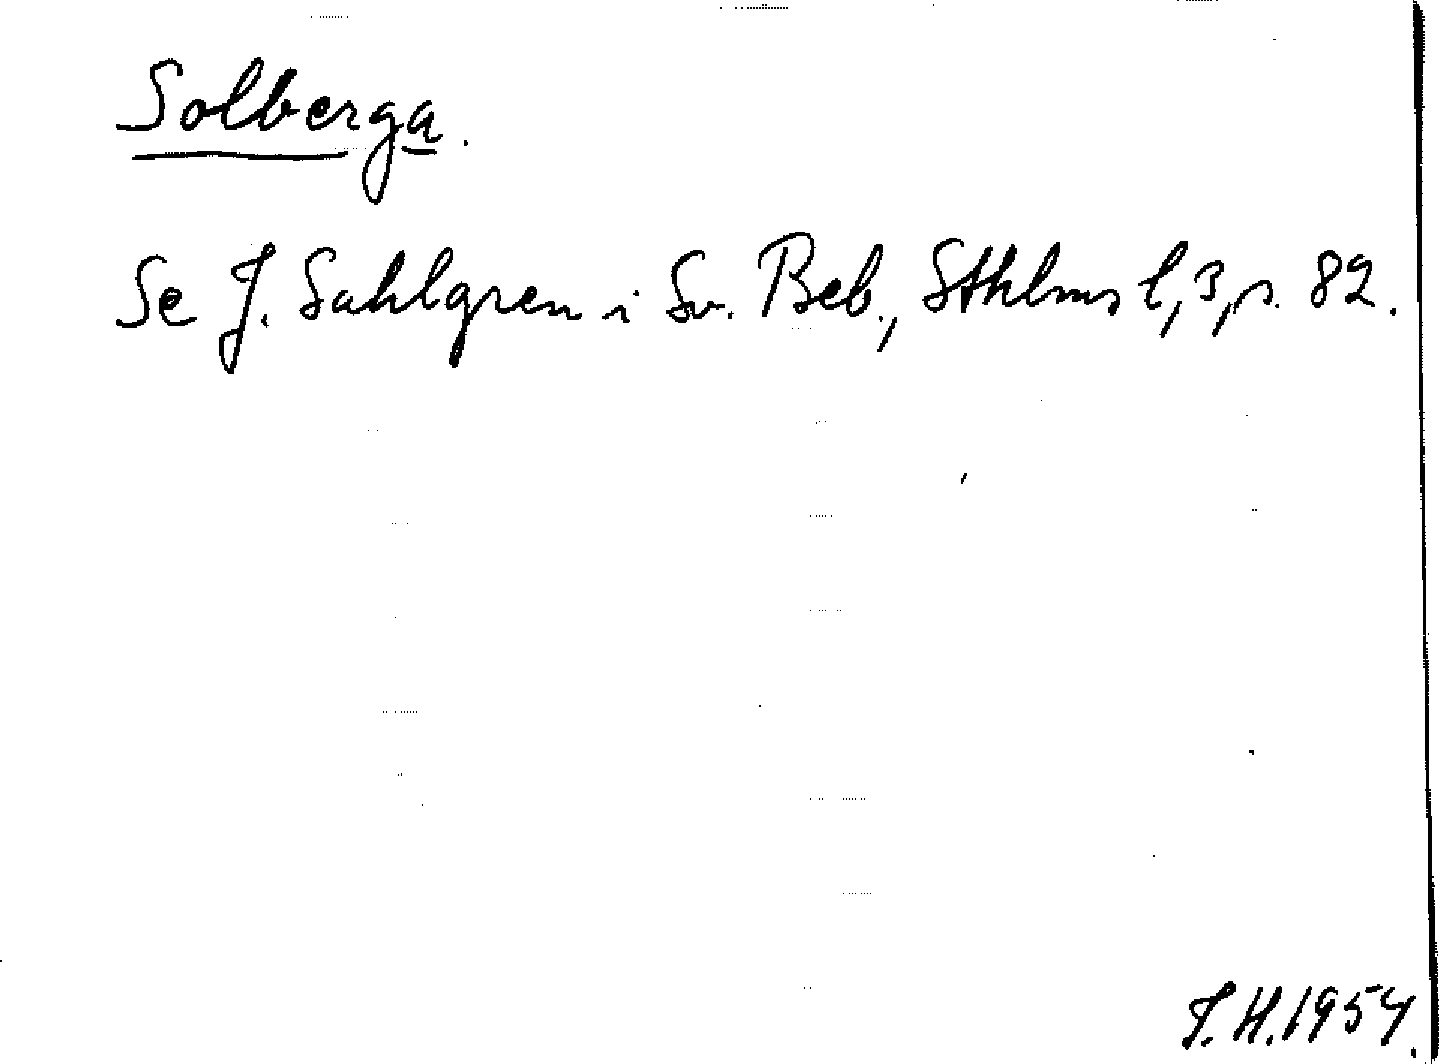 Solberga.
Se J. Sahlgren i Sv. Beb., Sthlms l, 3, s. 82.
J. H. 1954.